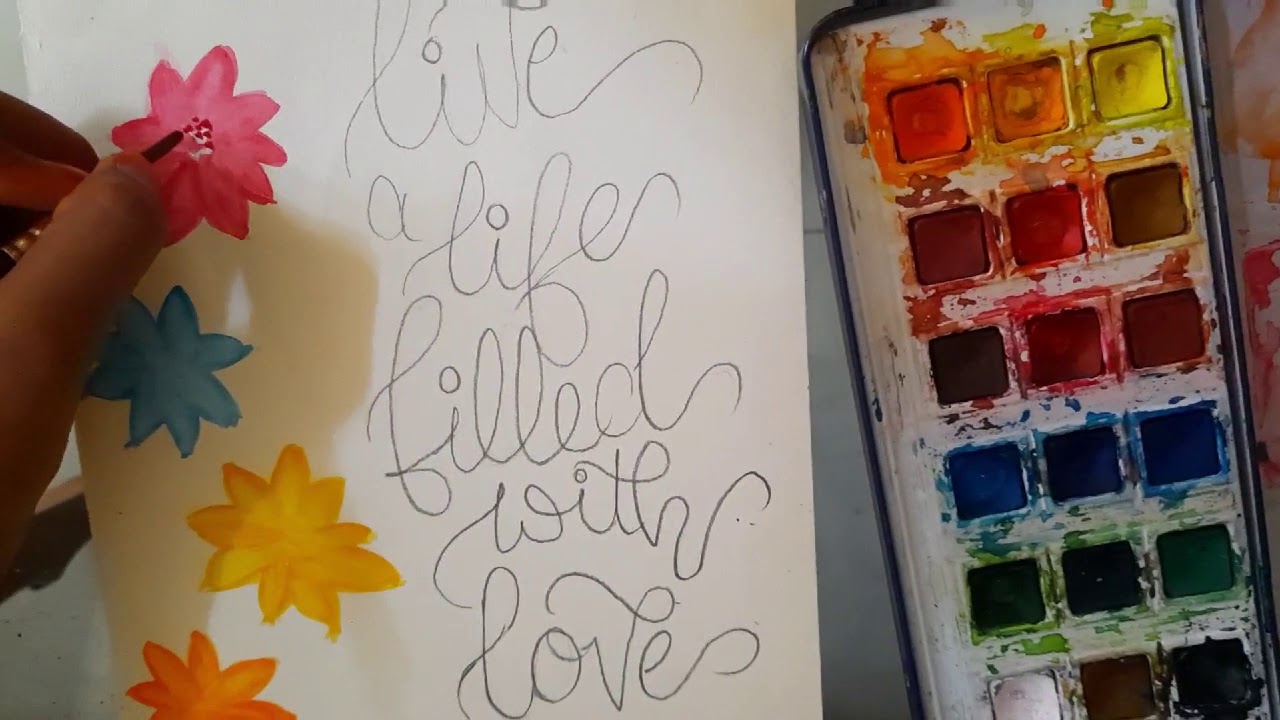 live
a life
filled
with
love